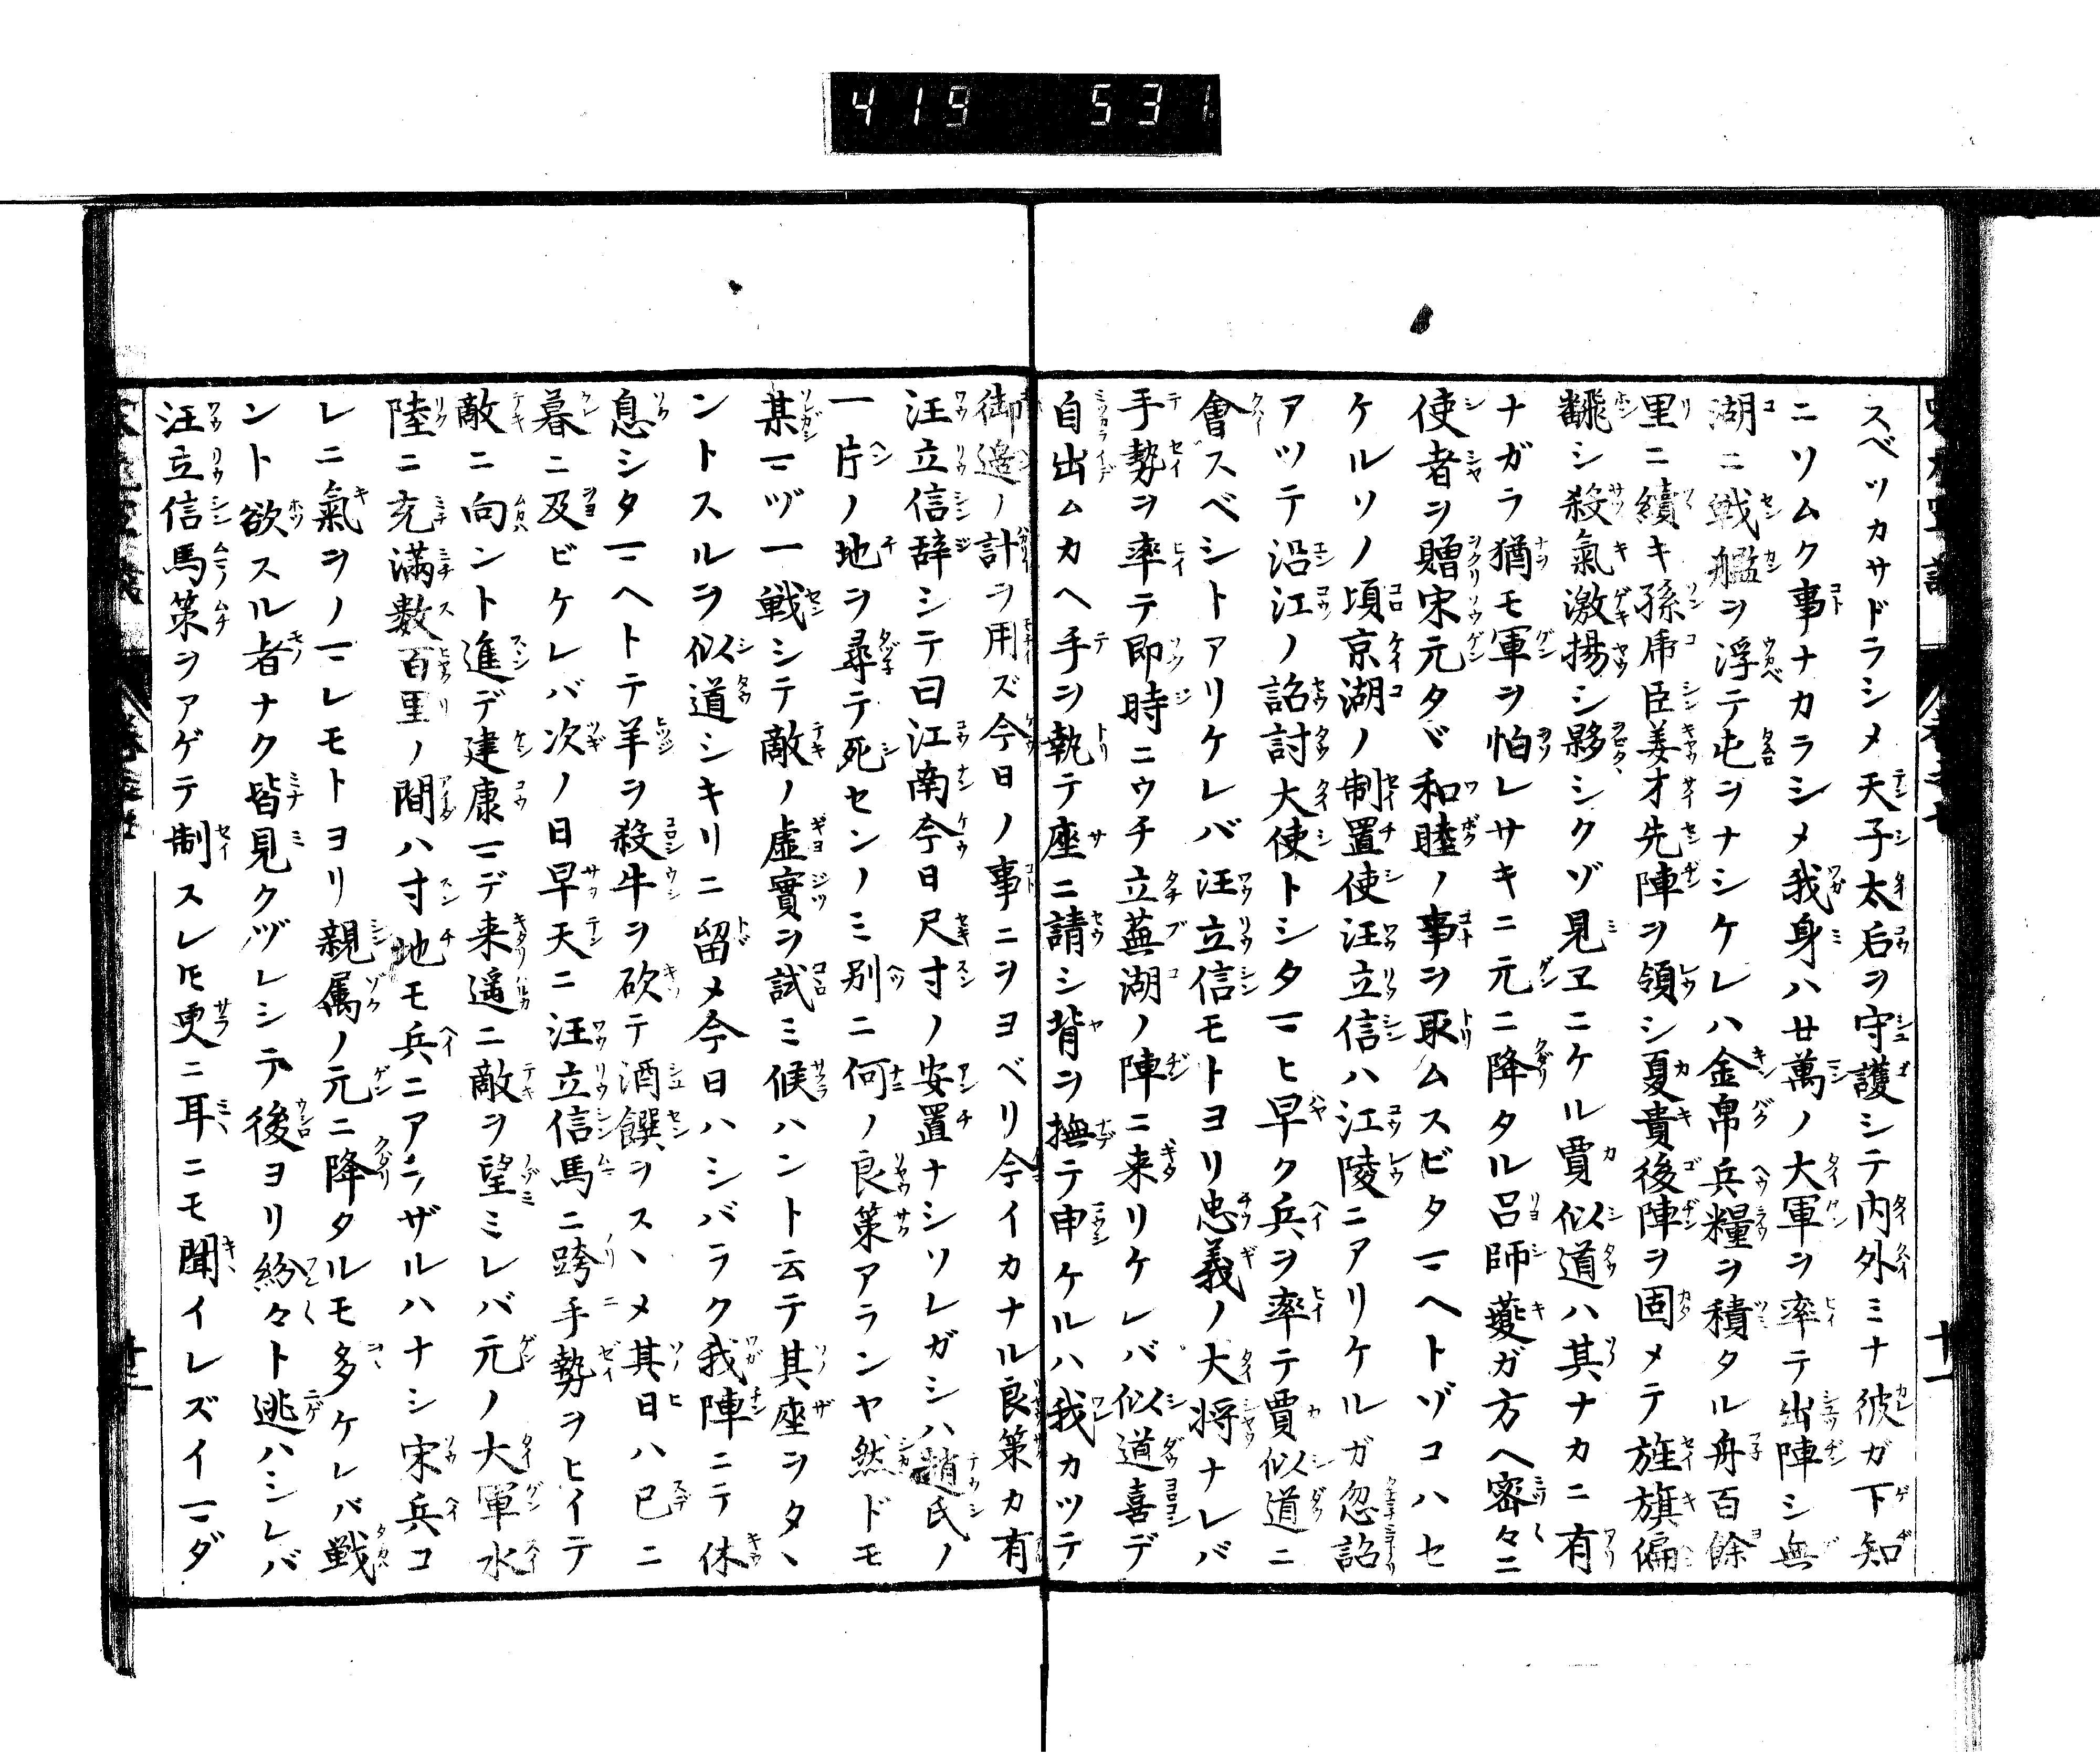 419 531
スベツカサドラシメ天子太后ヲ守護シテ内外ミナ彼ガ下知
ニソムク事ナカラシメ我身ハ廿萬ノ大軍ヲ率テ出陣シ無
湖ニ戦艦ヲ浮テ屯ヲナシケレハ金帛兵糧ヲ積タル舟百餘
里ニ續キ孫虎臣姜才先陣ヲ領シ夏貴後陣ヲ固メテ旌旗偏
飜シ殺氣激揚シ夥シクゾ見ヱニケル賈似道ハ其ナカニ有
ナガラ猶モ軍ヲ怕レサキニ元ニ降タル呂師夔ガ方ヘ密々ニ
使者ヲ贈宋元タヾ和睦ノ事ヲ取ムスビタマヘトゾコハセ
ケルソノ頃京湖ノ制置使汪立信ハ江陵ニアリケルガ忽詔
アツテ沿江ノ詔討大使トシタマヒ早ク兵ヲ率テ賈似道ニ
會スベシトアリケレバ汪立信モトヨリ忠義ノ大将ナレバ
手勢ヲ率テ即時ニウチ立蕪湖ノ陣ニ来リケレバ似道喜デ
自出ムカヘ手ヲ執テ座ニ請シ背ヲ撫テ申ケルハ我カツテ
御邊ノ計ヲ用ズ今日ノ事ニヲヨベリ今イカナル良策カ有
汪立信辞シテ曰江南今日尺寸ノ安置ナシソレガシハ趙氏ノ
一片ノ地ヲ尋テ死センノミ別ニ何ノ良策アランヤ然ドモ
某マヅ一戦シテ敵ノ虚實ヲ試ミ候ハント云テ其座ヲタヽ
ントスルヲ似道シキリニ留メ今日ハシバラク我陣ニテ休
息シタマヘトテ羊ヲ殺牛ヲ砍テ酒饌ヲスヽメ其日ハ已ニ
暮ニ及ビケレバ次ノ日早天ニ汪立信馬ニ跨手勢ヲヒイテ
敵ニ向ント進デ建康マデ来遥ニ敵ヲ望ミレバ元ノ大軍水
陸ニ充滿数百里ノ間ハ寸地モ兵ニアラザルハナシ宋兵コ
レニ氣ヲノマレモトヨリ親属ノ元ニ降タルモ多ケレバ戦
ント欲スル者ナク皆見クヅレシテ後ヨリ紛々ト逃ハシレバ
汪立信馬策ヲアゲテ制スレ𪜈更ニ耳ニモ聞イレズイマダ